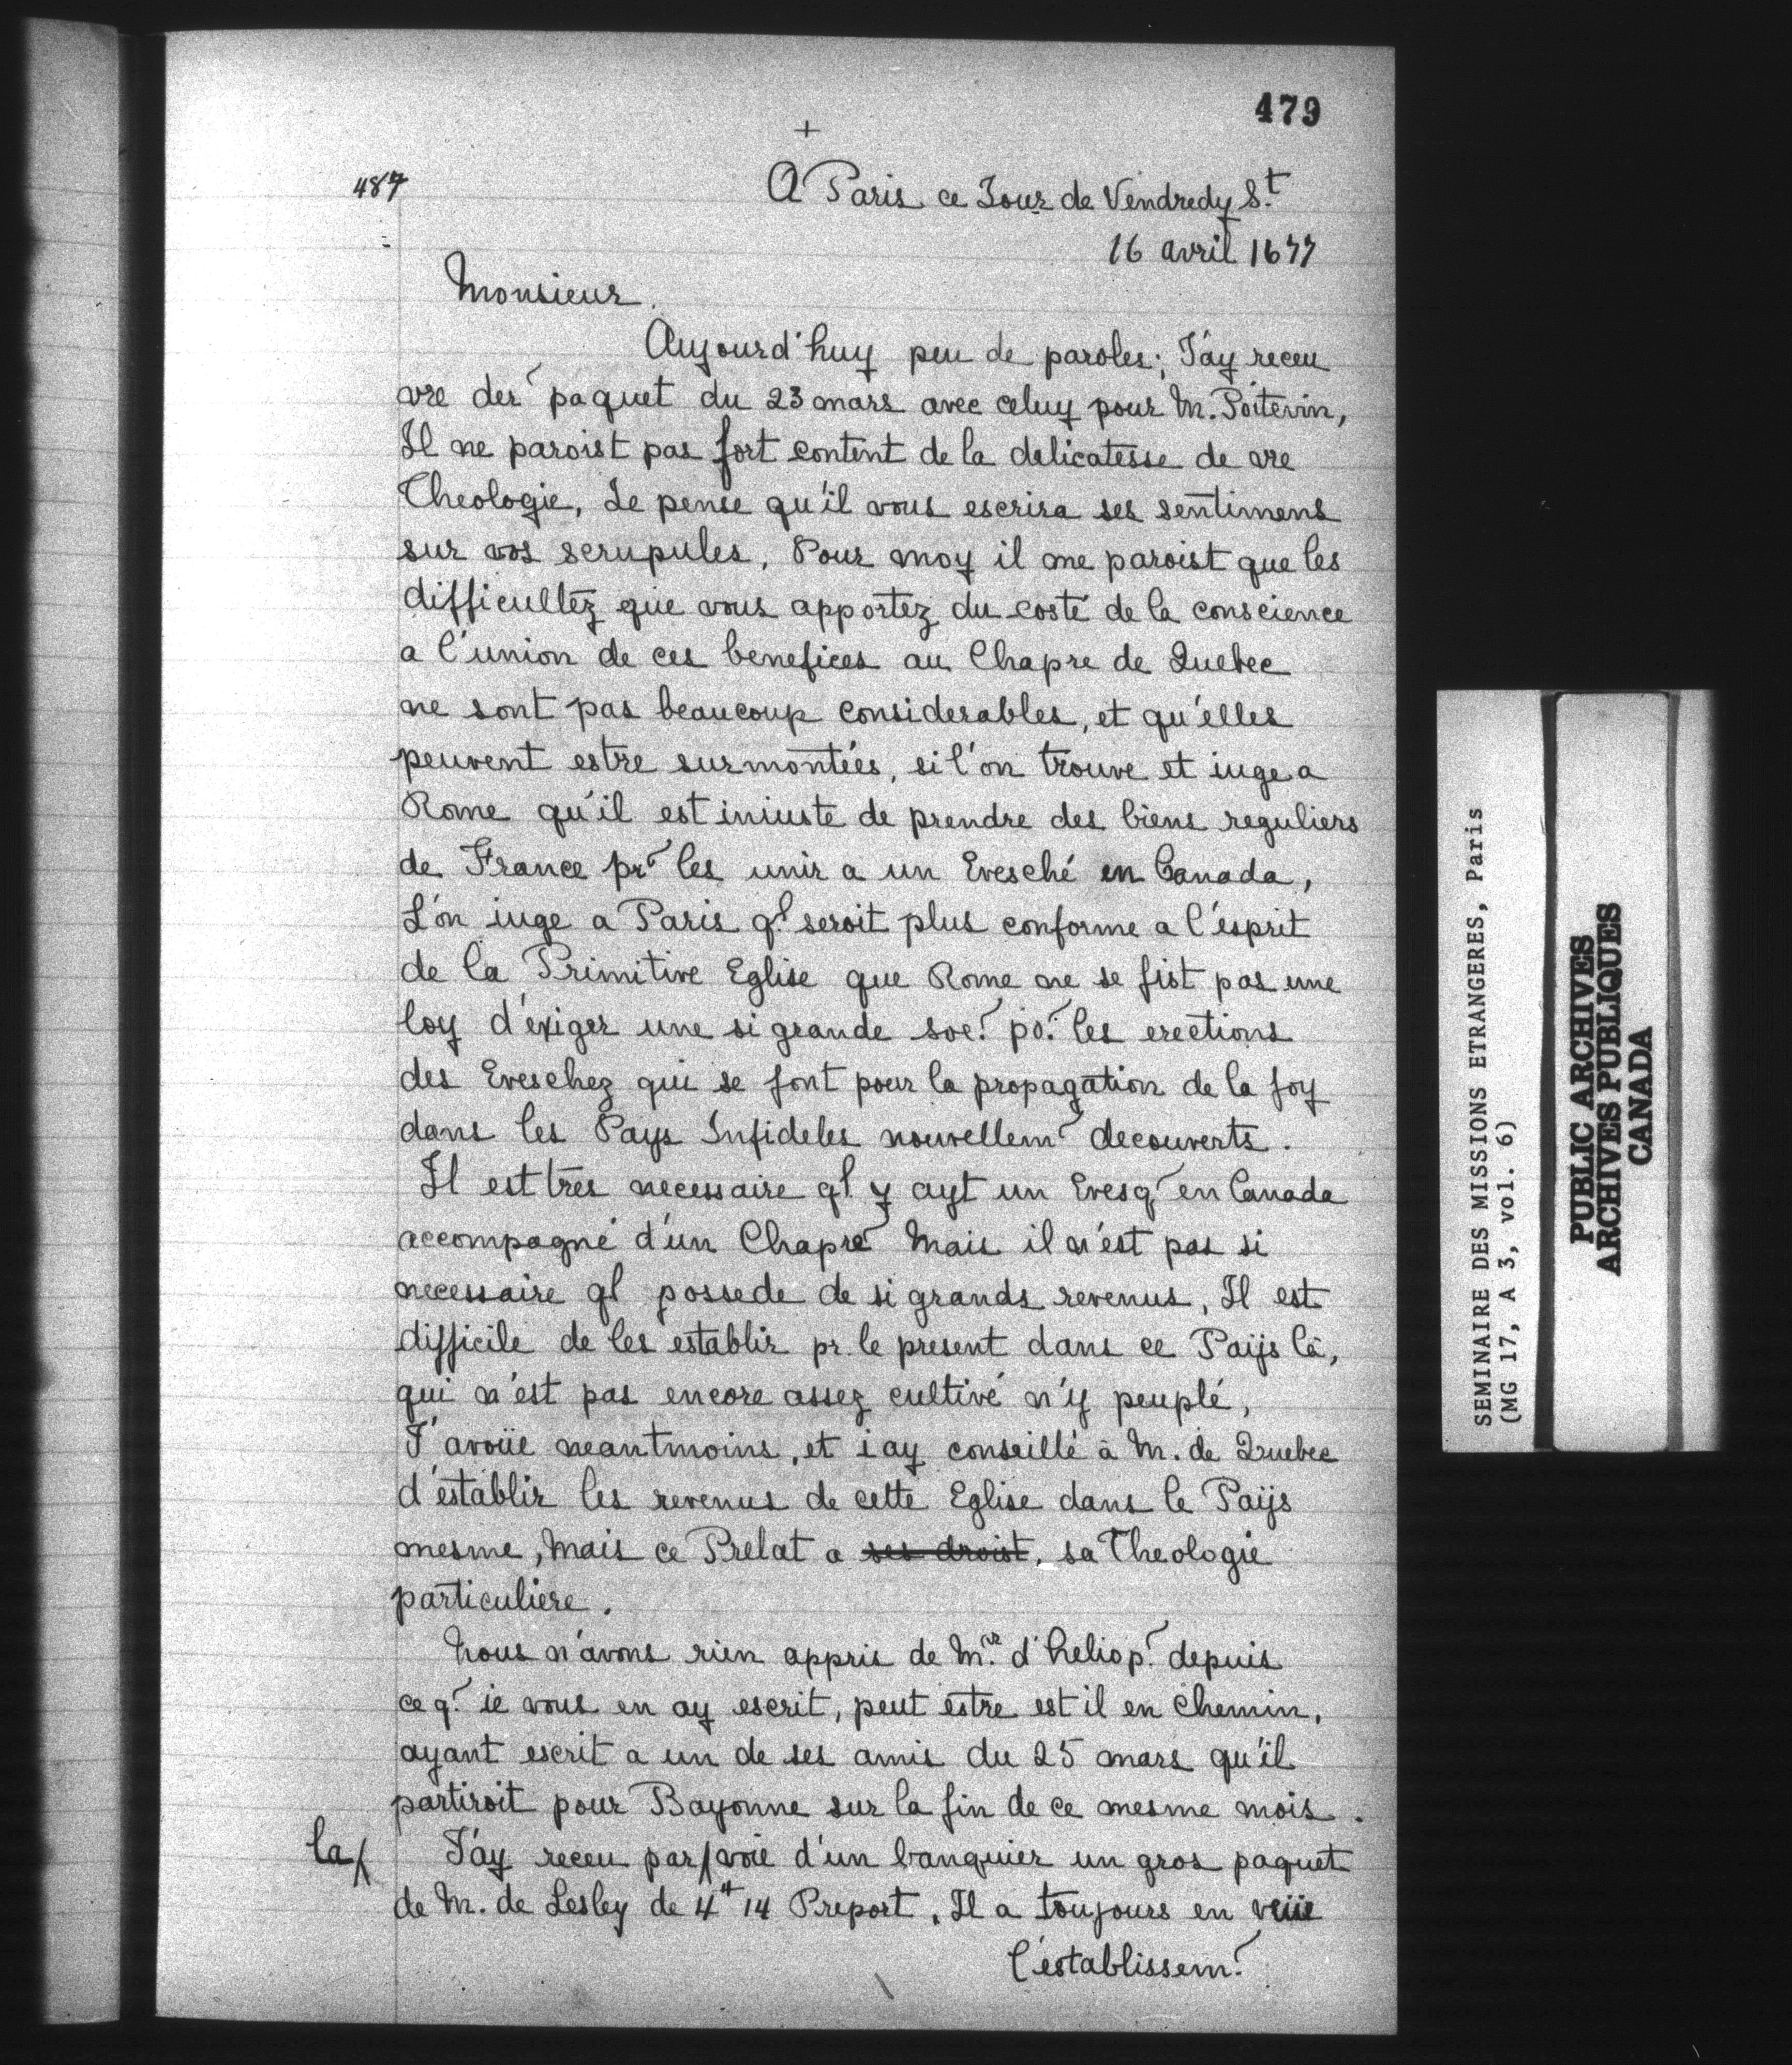 479
+
487
A Paris ce Jour de Vendredy St
16 avril 1677
Monsieur.
Aujourd'huy peu de paroles; J'ay receu
vre der paquet du 23 mars avec celuy pour M. Poitevin,
Il ne paroist pas fort content de la delicatesse de vre
Theologie, Je pense qu'il vous escrira ses sentimens
sur vos scrupules, Pour moy il me paroist que les
difficultez que vous apportez du costé de la conscience
a l'union de ces benefices au Chapre de Quebec
ne sont pas beaucoup considerables, et qu'elles
peuvent estre surmontées, si l'on trouve et iuge a
Rome qu'il est iniuste de prendre des biens reguliers
de France pr les unir a un Evesché en Canada,
L'on iuge a Paris ql seroit plus conforme a l'esprit
de la Primitive Eglise que Rome ne se fist pas une
loy d'exiger une si grande soe. po. les erections
des Eveschez qui se font pour la propagation de la foy
dans les Pays Infideles nouvellem decouverts.
Il est tres necessaire ql y ayt un Evesq en Canada
accompagné d'un Chapre Mais il n'est pas si
necessaire ql possede de si grands revenus, Il est
difficile de les establir pr. le present dans ce Païjs là,
qui n'est pas encore assez cultivé n'y peuplé,
J'avoüe neantmoins, et i ay conseillé à M. de Quebec
d'establir les revenus de cette Eglise dans le Païjs
mesme, Mais ce Prelat a ses droist, sa Theologie
particuliere.
Nous n'avons rien appris de Mr. d'heliop. depuis
ce q. ie vous en ay escrit, peut estre est il en chemin,
ayant escrit a un de ses amis du 25 mars qu'il
partiroit pour Bayonne sur la fin de ce mesme mois.
la/ J'ay receu par/voie d'un banquier un gros paquet
de M. de Lesley de 4# 14 Preport, Il a toujours en veüe
l'establissem.
SEMINAIRE DES MISSIONS ETRANGERES, Paris
(MG 17, A 3, vol. 6)
PUBLIC ARCHIVES
ARCHIVES PUBLIQUES
CANADA